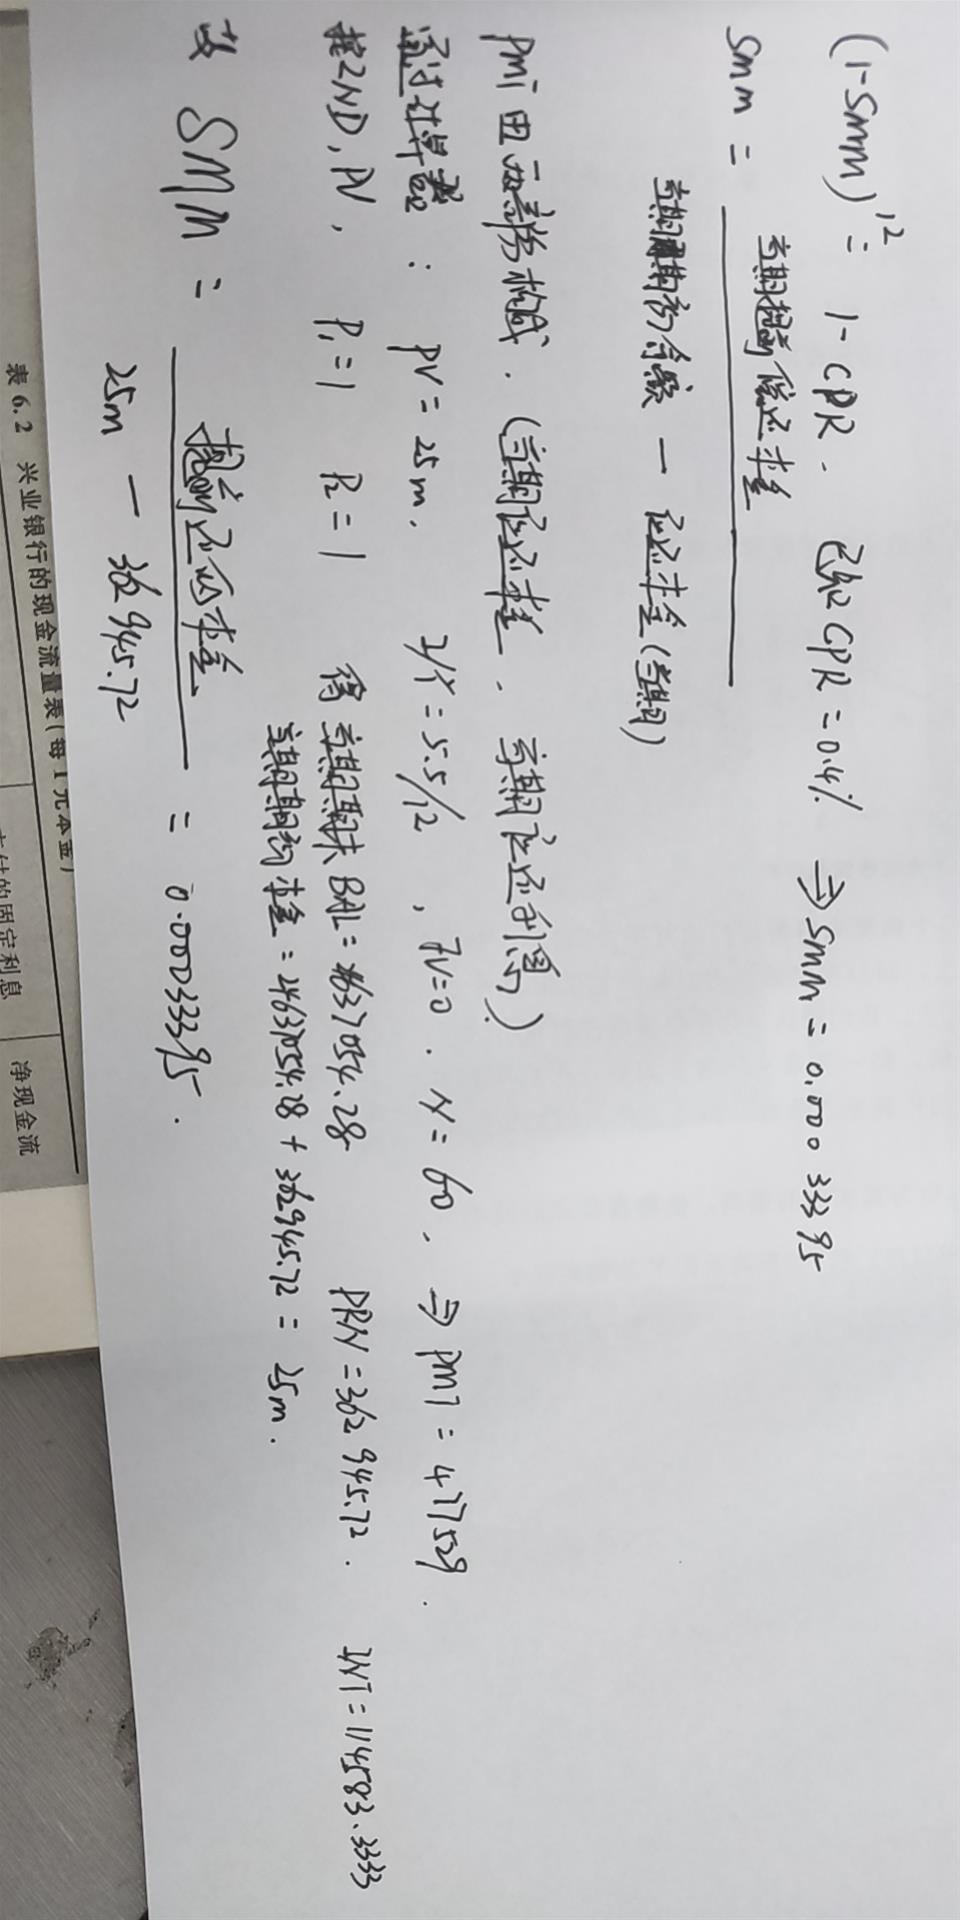 (1-SMM)^12 = 1-CPR. 已知CPR=0.4% ⇒ SMM=0.00033395
SMM = 当期提前偿还本金
当期期初余额 — 应还本金(当期)
PMT由两部分构成.(当期应还本金、当期应还利息.)
通过计算器: PV=25m, I/Y=5.5/12, FV=0. N=60. ⇒ PMT=477529.
按2ND, PV, P1=1 P2=1 得当期期末BAL=24637054.28 PRN=362945.72. INT=114583.3333
当期期初本金=24637054.28+362945.72=25m.
故 SMM = 提前还的本金 = 0.00033395.
25m — 362945.72
表6.2 兴业银行的现金流量表(每1元本金)
支付的固定利息 净现金流